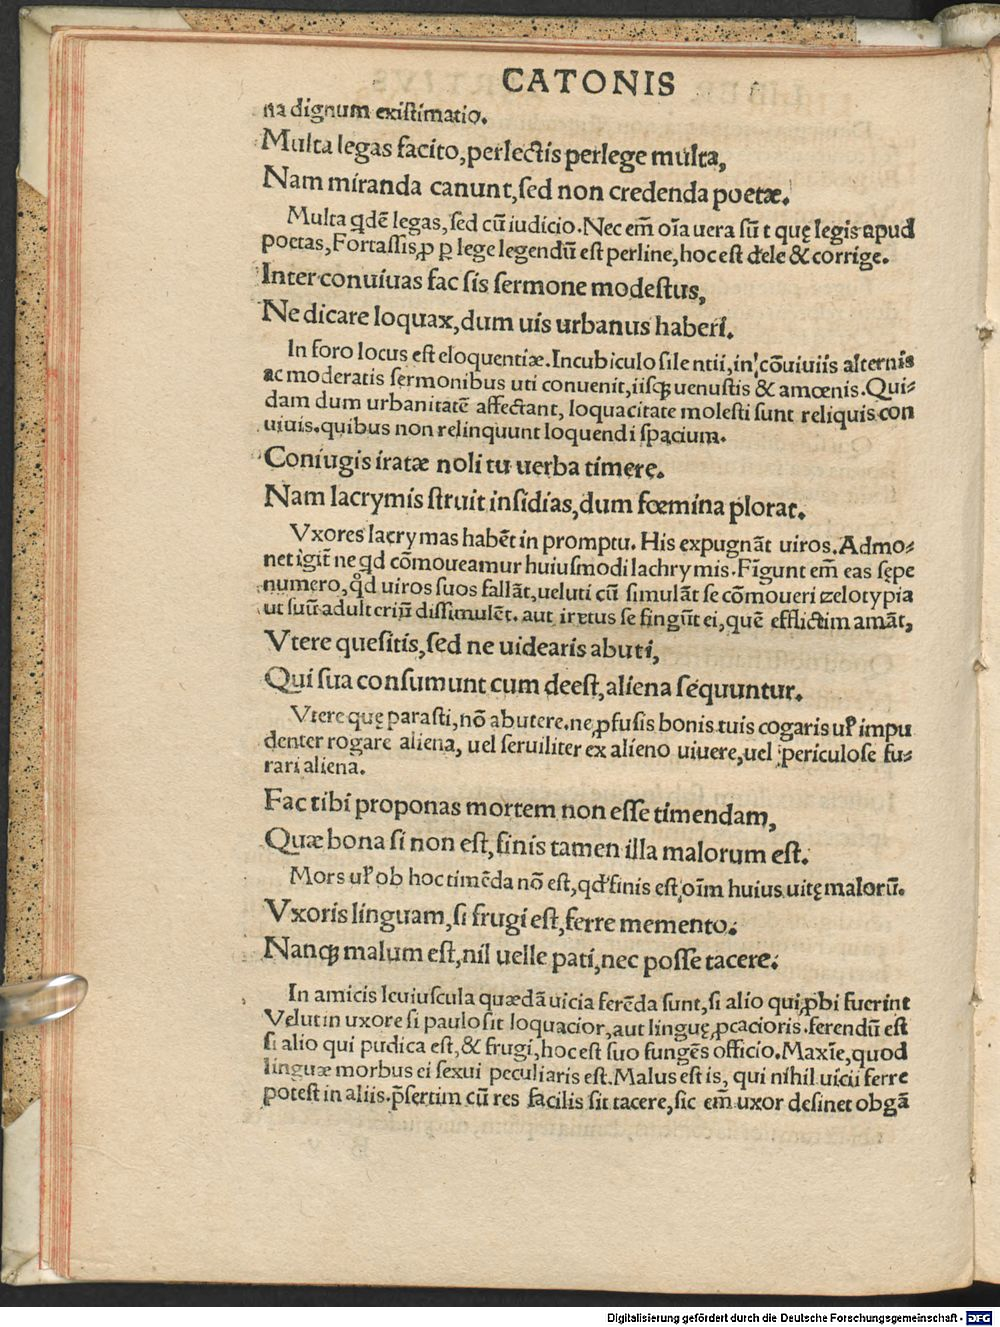 CATONIS
na dignum existimatio.
Multa legas facito, perlectis perlege multa,
Nam miranda canunt, sed non credenda poetæ.
Multa qdē legas, sed cū iudicio. Nec em̄ oīa uera sūt quę legis apud
poetas, Fortassis, ꝓ ꝑ lege legendū est perline, hoc est dele & corrige.
Inter conuiuas fac sis sermone modestus,
Ne dicare loquax, dum uis urbanus haberi.
In foro locus est eloquentiæ. In cubiculo silentii, in cōuiuiis alternis
ac moderatis sermonibus uti conuenit, iisqꝫ uenustis & amœnis. Qui-
dam dum urbanitatē affectant, loquacitate molesti sunt reliquis con
uiuis. quibus non relinquunt loquendi spacium.
Coniugis iratæ noli tu uerba timere.
Nam lacrymis struit insidias, dum fœmina plorat.
Vxores lacrymas habēt in promptu. His expugnāt uiros. Admo-
net igit̄ ne qd cōmoueamur huiusmodi lachrymis. Figunt em̄ eas sępe
numero, qd̕ uiros suos fallāt, ueluti cū simulāt se cōmoueri zelotypia
ut suū adulteriū dissimulēt. aut iratus se fingūt ei, quē efflictim amāt,
Vtere quesitis, sed ne uidearis abuti,
Qui sua consumunt cum deest, aliena sequuntur.
Vtere quę parasti, nō abutere. ne ꝓfusis bonis tuis cogaris ul̕ impu
denter rogare aliena, uel seruiliter ex alieno uiuere, uel periculose fu-
rari aliena.
Fac tibi proponas mortem non esse timendam,
Quæ bona si non est, finis tamen illa malorum est.
Mors ul̕ ob hoc timēda nō est, qd̕ finis est oīm huius uitę malorū.
Vxoris linguam, si frugi est, ferre memento.
Nanqꝫ malum est, nil uelle pati, nec posse tacere.
In amicis leuiuscula quædā uicia ferēda sunt, si alio qui ꝓbi fuerint
Velut in uxore si paulo sit loquacior, aut linguę ꝓcacioris. ferendū est
si alio qui pudica est, & frugi, hoc est suo fungēs officio. Maxīe, quod
linguæ morbus ei sexui peculiaris est. Malus est is, qui nihil uicii ferre
potest in aliis. p̄sertim cū res facilis sit tacere, sic em̄ uxor desinet obgā
Digitalisierung gefördert durch die Deutsche Forschungsgemeinschaft - DFG